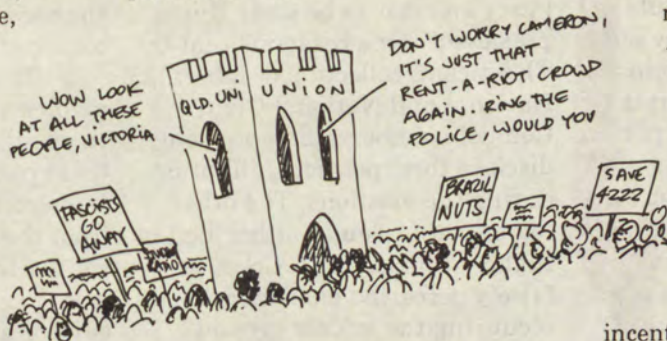 e,
WOW LOOK
AT ALL THESE
PEOPLE, VICTORIA
QLD. UNI UNION
DON'T WORRY CAMERON,
IT'S JUST THAT
RENT-A-RIOT CROWD
AGAIN. RING THE
POLICE, WOULD YOU
FASCISTS
GO
AWAY
BRAZIL
NUTS
SAVE
4ZZZ
incent